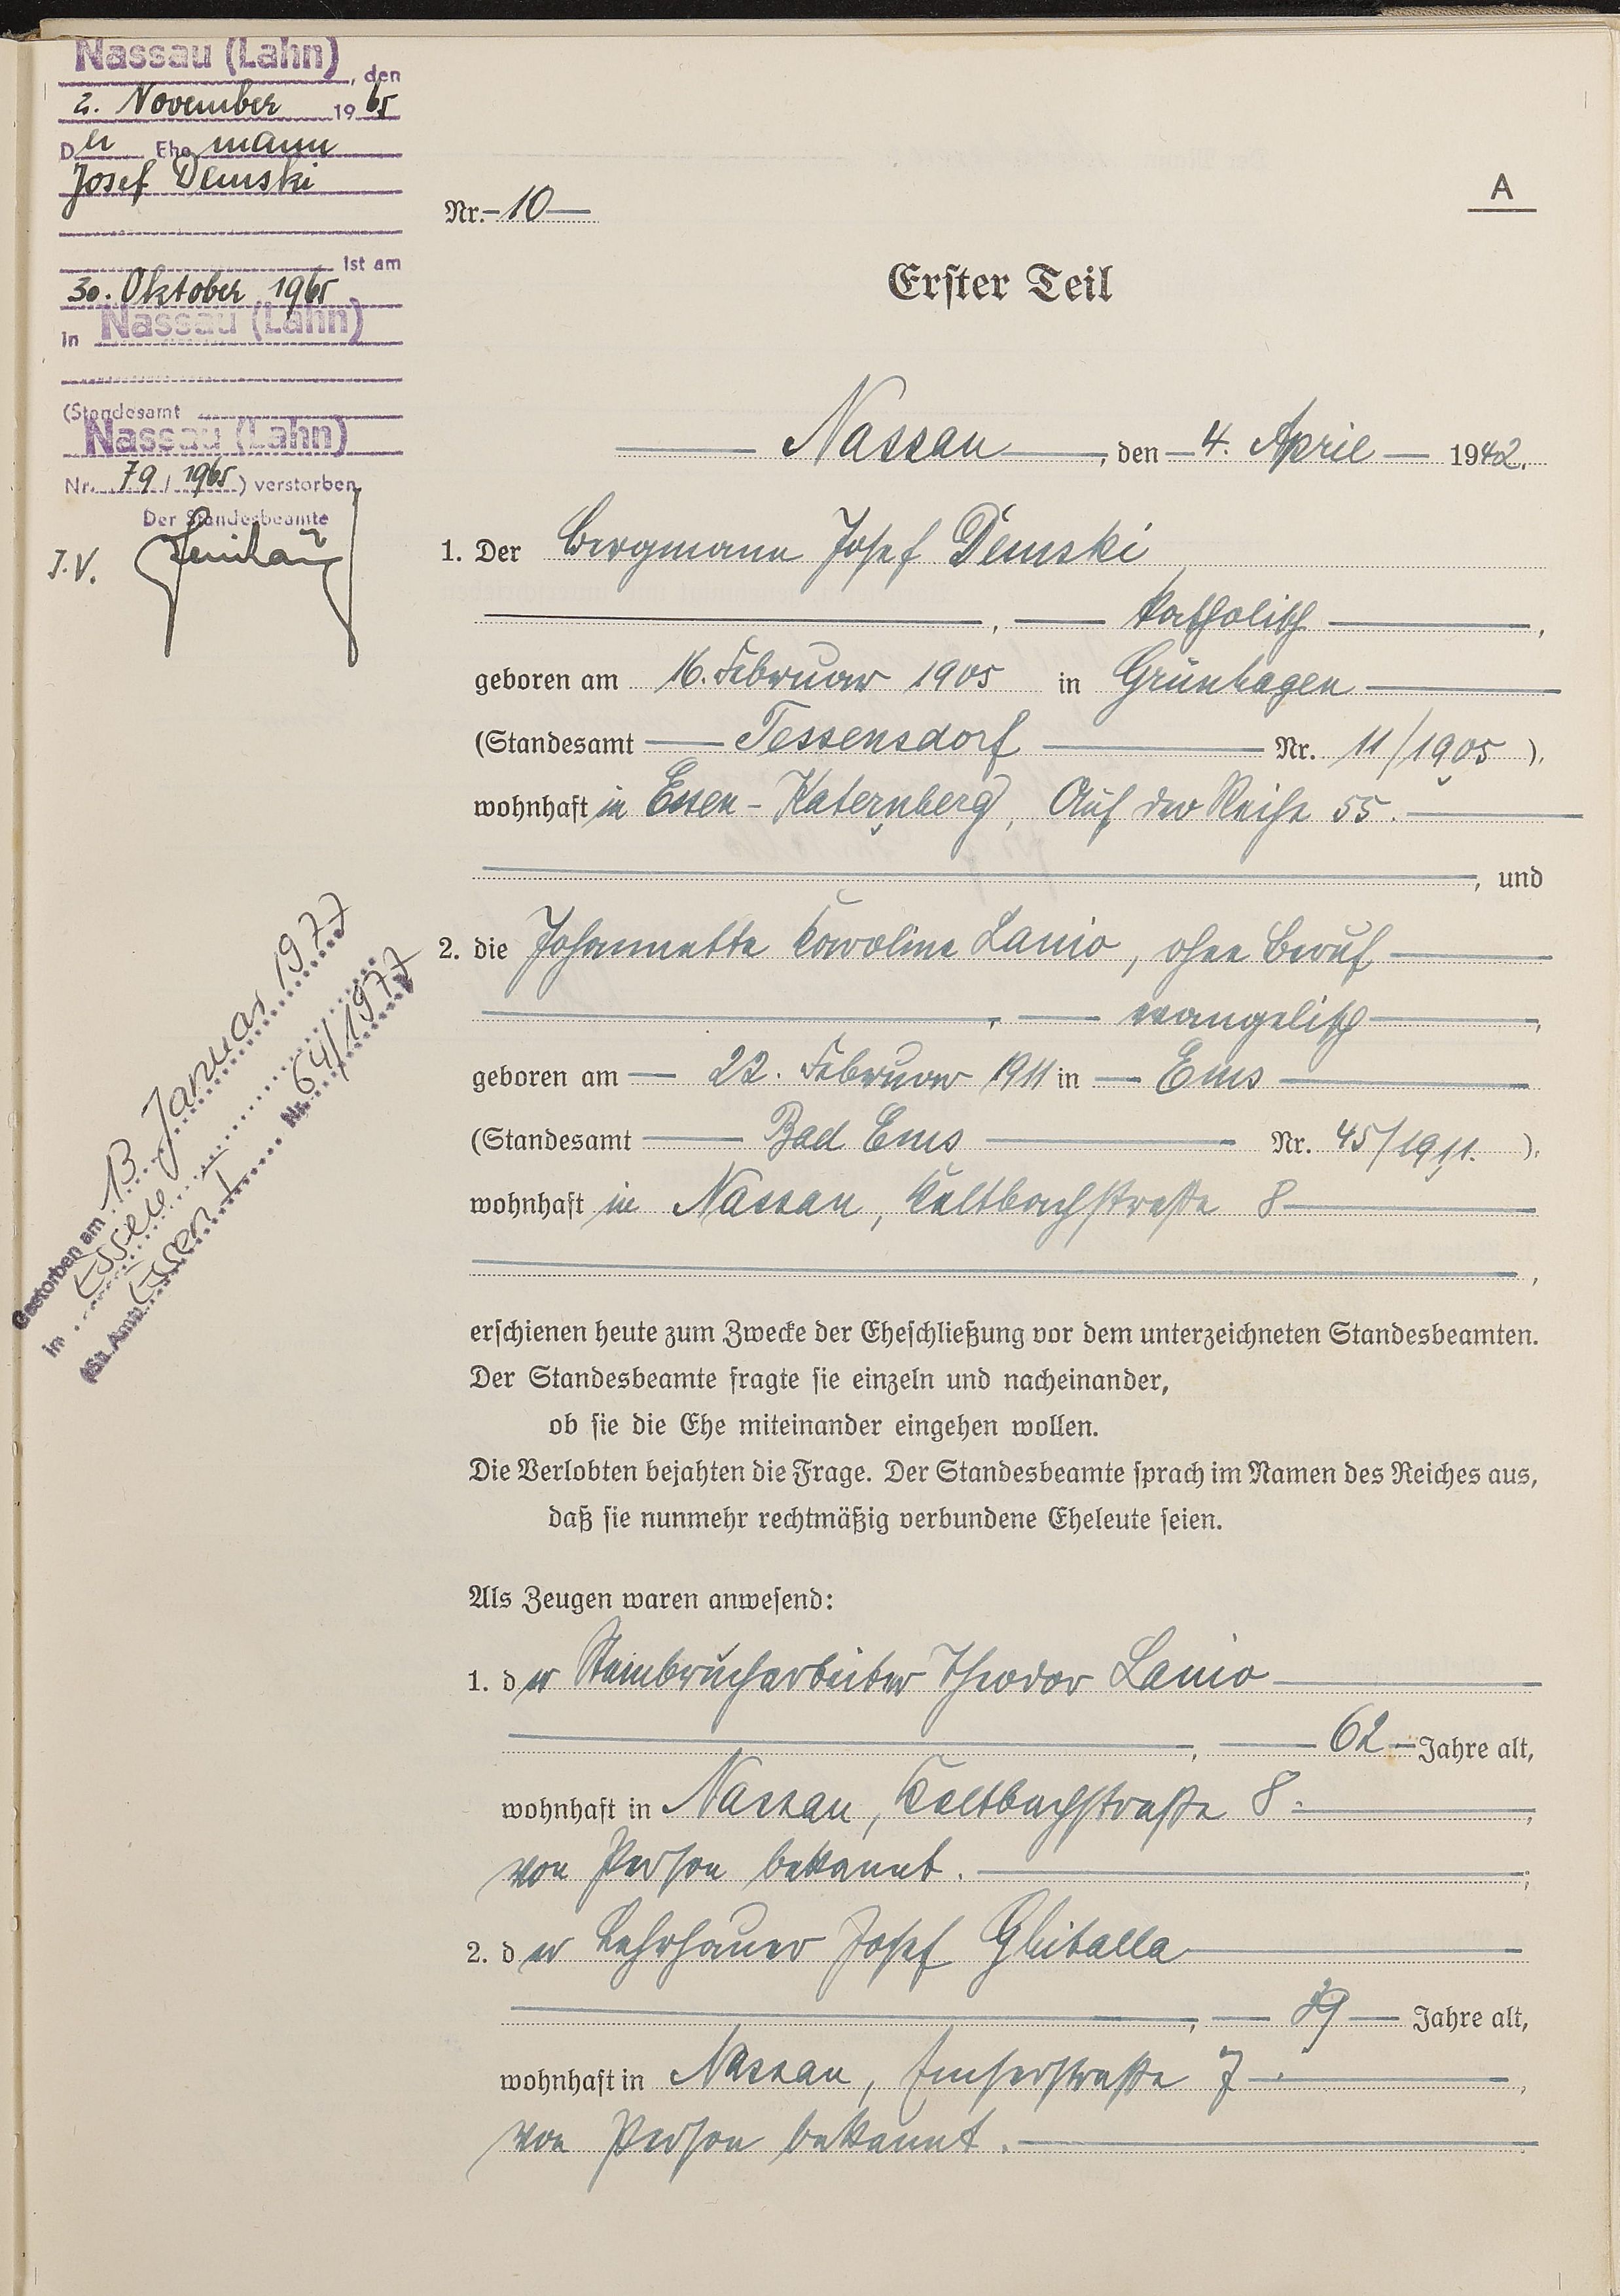 Nassau (Lahn), den
2. November 1965
Der Ehemann
Josef Demski
ist am
30. Oktober 1965
in Nassau (Lahn)
(Standesamt
Nassau (Lahn)
Nr. 79 / 1965) verstorben
Der Standesbeamte
J.V.
A
Nr. 10
Erster Teil
Nassau, den 4. April 1942.
1. Der Bergmann Josef Demski
, katholisch,
geboren am 16. Februar 1905 in Grünhagen
(Standesamt Tessensdorf Nr. 11/1905),
wohnhaft in Essen-Katernberg, Auf der Reihe 55.
, und
2. die Johannette Karoline Lanio, ohne Beruf
, evangelisch,
geboren am 22. Februar 1911 in Ems
(Standesamt Bad Ems Nr. 45/1911.),
wohnhaft in Nassau, Kaltbachstraße 8
,
Gestorben am 13. Januar 1977
in Essen
(St. Amt Essen I Nr. 64/1977
erschienen heute zum Zwecke der Eheschließung vor dem unterzeichneten Standesbeamten.
Der Standesbeamte fragte sie einzeln und nacheinander,
ob sie die Ehe miteinander eingehen wollen.
Die Verlobten bejahten die Frage. Der Standesbeamte sprach im Namen des Reiches aus,
daß sie nunmehr rechtmäßig verbundene Eheleute seien.
Als Zeugen waren anwesend:
1. der Steinbrucharbeiter Theodor Lanio
, 62 Jahre alt,
wohnhaft in Nassau, Kaltbachstraße 8.,
von Person bekannt.;
2. der Lehrhauer Josef Glitalla
, Jahre alt,
wohnhaft in Nassau, Emserstraße 7.,
von Person bekannt.